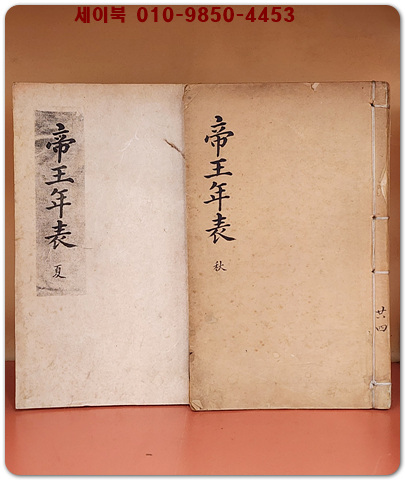 세이북 010-9850-4453
帝王年表
夏
帝王年表
秋
廿四